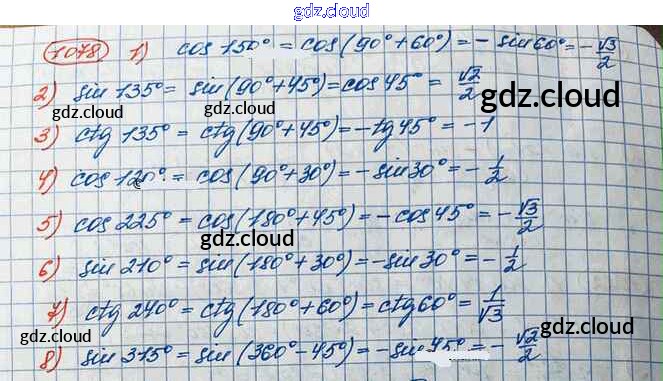 gdz.cloud
1078 1) cos 150° = cos(90°+60°) = - sin60° = - √3/2
2) sin 135° = sin(90°+45°) = cos 45° = √2/2
gdz.cloud gdz.cloud gdz.cloud
3) ctg 135° = ctg(90°+45°) = - tg 45° = - 1
4) cos 120° = cos(90°+30°) = - sin 30° = - 1/2
5) cos 225° = cos(180°+45°) = - cos 45° = - √3/2
gdz.cloud
6) sin 210° = sin(180°+30°) = - sin 30° = - 1/2
7) ctg 240° = ctg(180°+60°) = ctg 60° = 1/√3
gdz.cloud gdz.cloud
8) sin 315° = sin(360°-45°) = - sin 45° = - √2/2